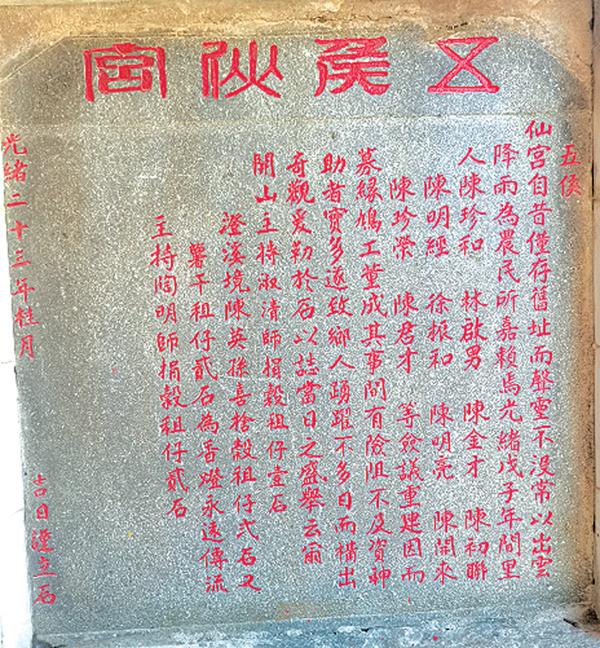 五矦仙宮
五侯
仙宮自昔僅存舊址而聲靈不没常以出雲
降雨為農民所嘉賴焉光緒戊子年間里
人陳珍和 林啟男 陳金才 陳初聯
陳明經 徐振和 陳明亮 陳開來
陳珍榮 陳君才 等僉議重建因而
募緣鳩工董成其事間有險阻不及資神
助者實多遂致鄉人踴躍不多日而構出
奇觀爰勒於石以誌當日之盛舉云爾
開山主持淑清師捐穀租仔壹石
澄溪境陳英孫喜捨穀租仔弍石又
薯干租仔貳石為香燈永遠傳流
主持陶明師捐穀租仔貳石
光緒二十三年桂月 吉日謹立石